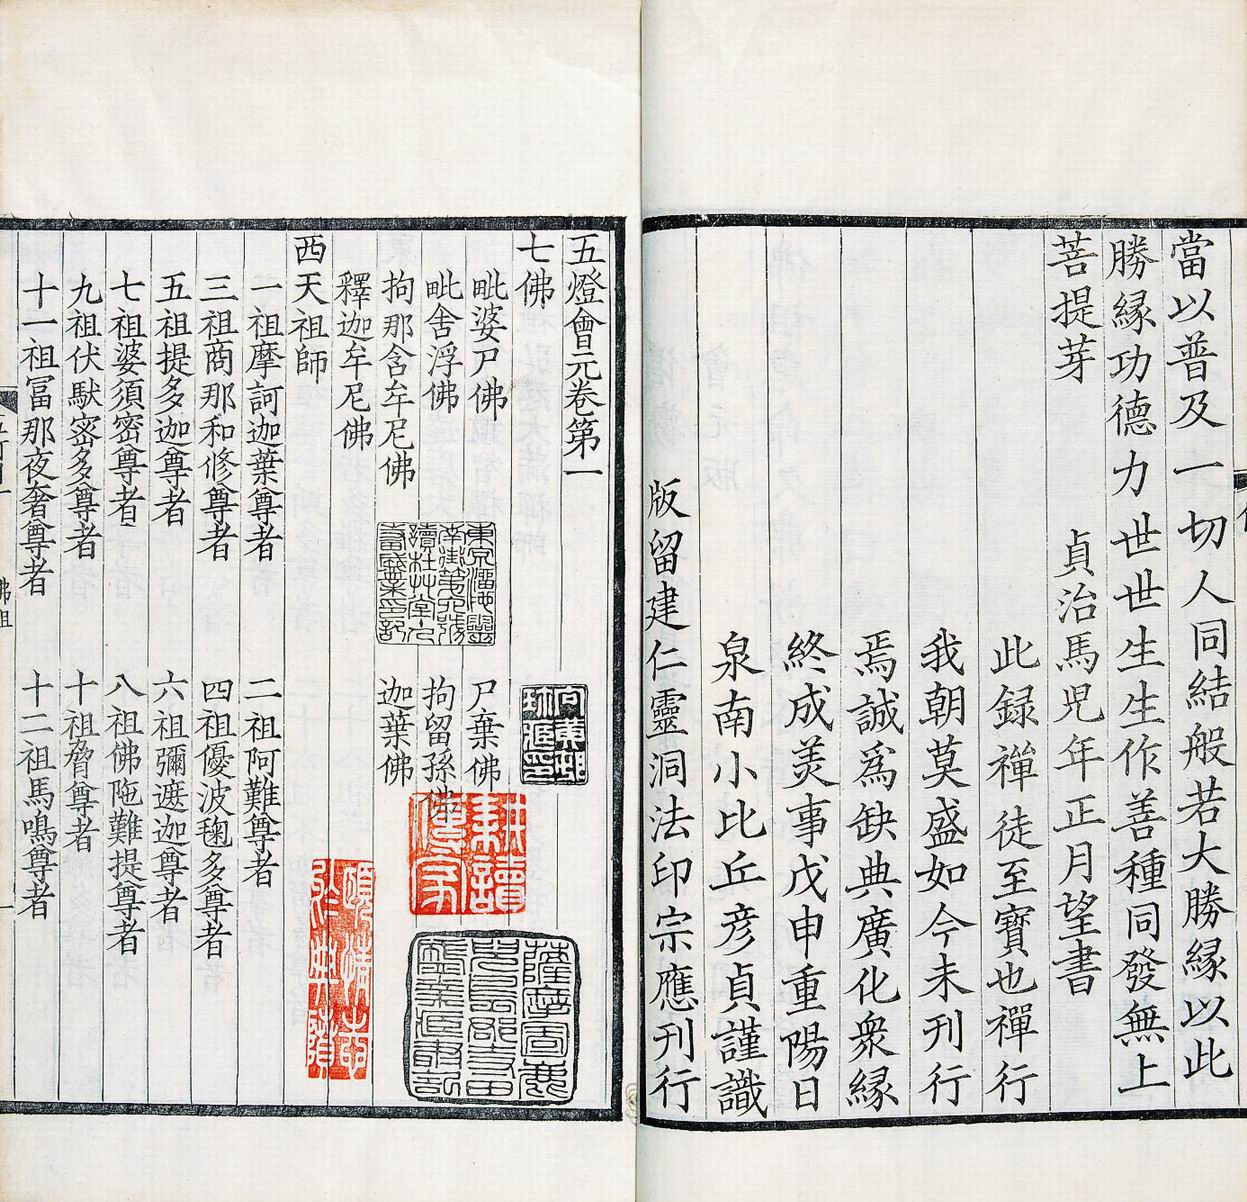 當以普及一切人同結般若大勝緣以此
勝緣功德力世世生生作善種同發無上
菩提芽
貞治馬兒年正月望書
此録禪徒至寶也禪行
我朝莫盛如今未刊行
焉誠爲缺典廣化衆緣
終成美事戊申重陽日
泉南小比丘彦貞謹識
版留建仁靈洞法印宗應刊行
五燈會元卷第一
七佛
毗婆尸佛 尸棄佛
毗舍浮佛 拘留孫佛
拘那含牟尼佛 迦葉佛
釋迦牟尼佛
西天祖師
一祖摩訶迦葉尊者 二祖阿難尊者
三祖商那和修尊者 四祖優波毱多尊者
五祖提多迦尊者 六祖彌遮迦尊者
七祖婆須密尊者 八祖佛陁難提尊者
九祖伏馱密多尊者 十祖脅尊者
十一祖冨那夜奢尊者 十二祖馬鳴尊者
向黄邨
珎藏印
耕讀
傳家
東京溜池靈
南街第六號
讀杜艸堂主
寺田盛業印記
佛祖